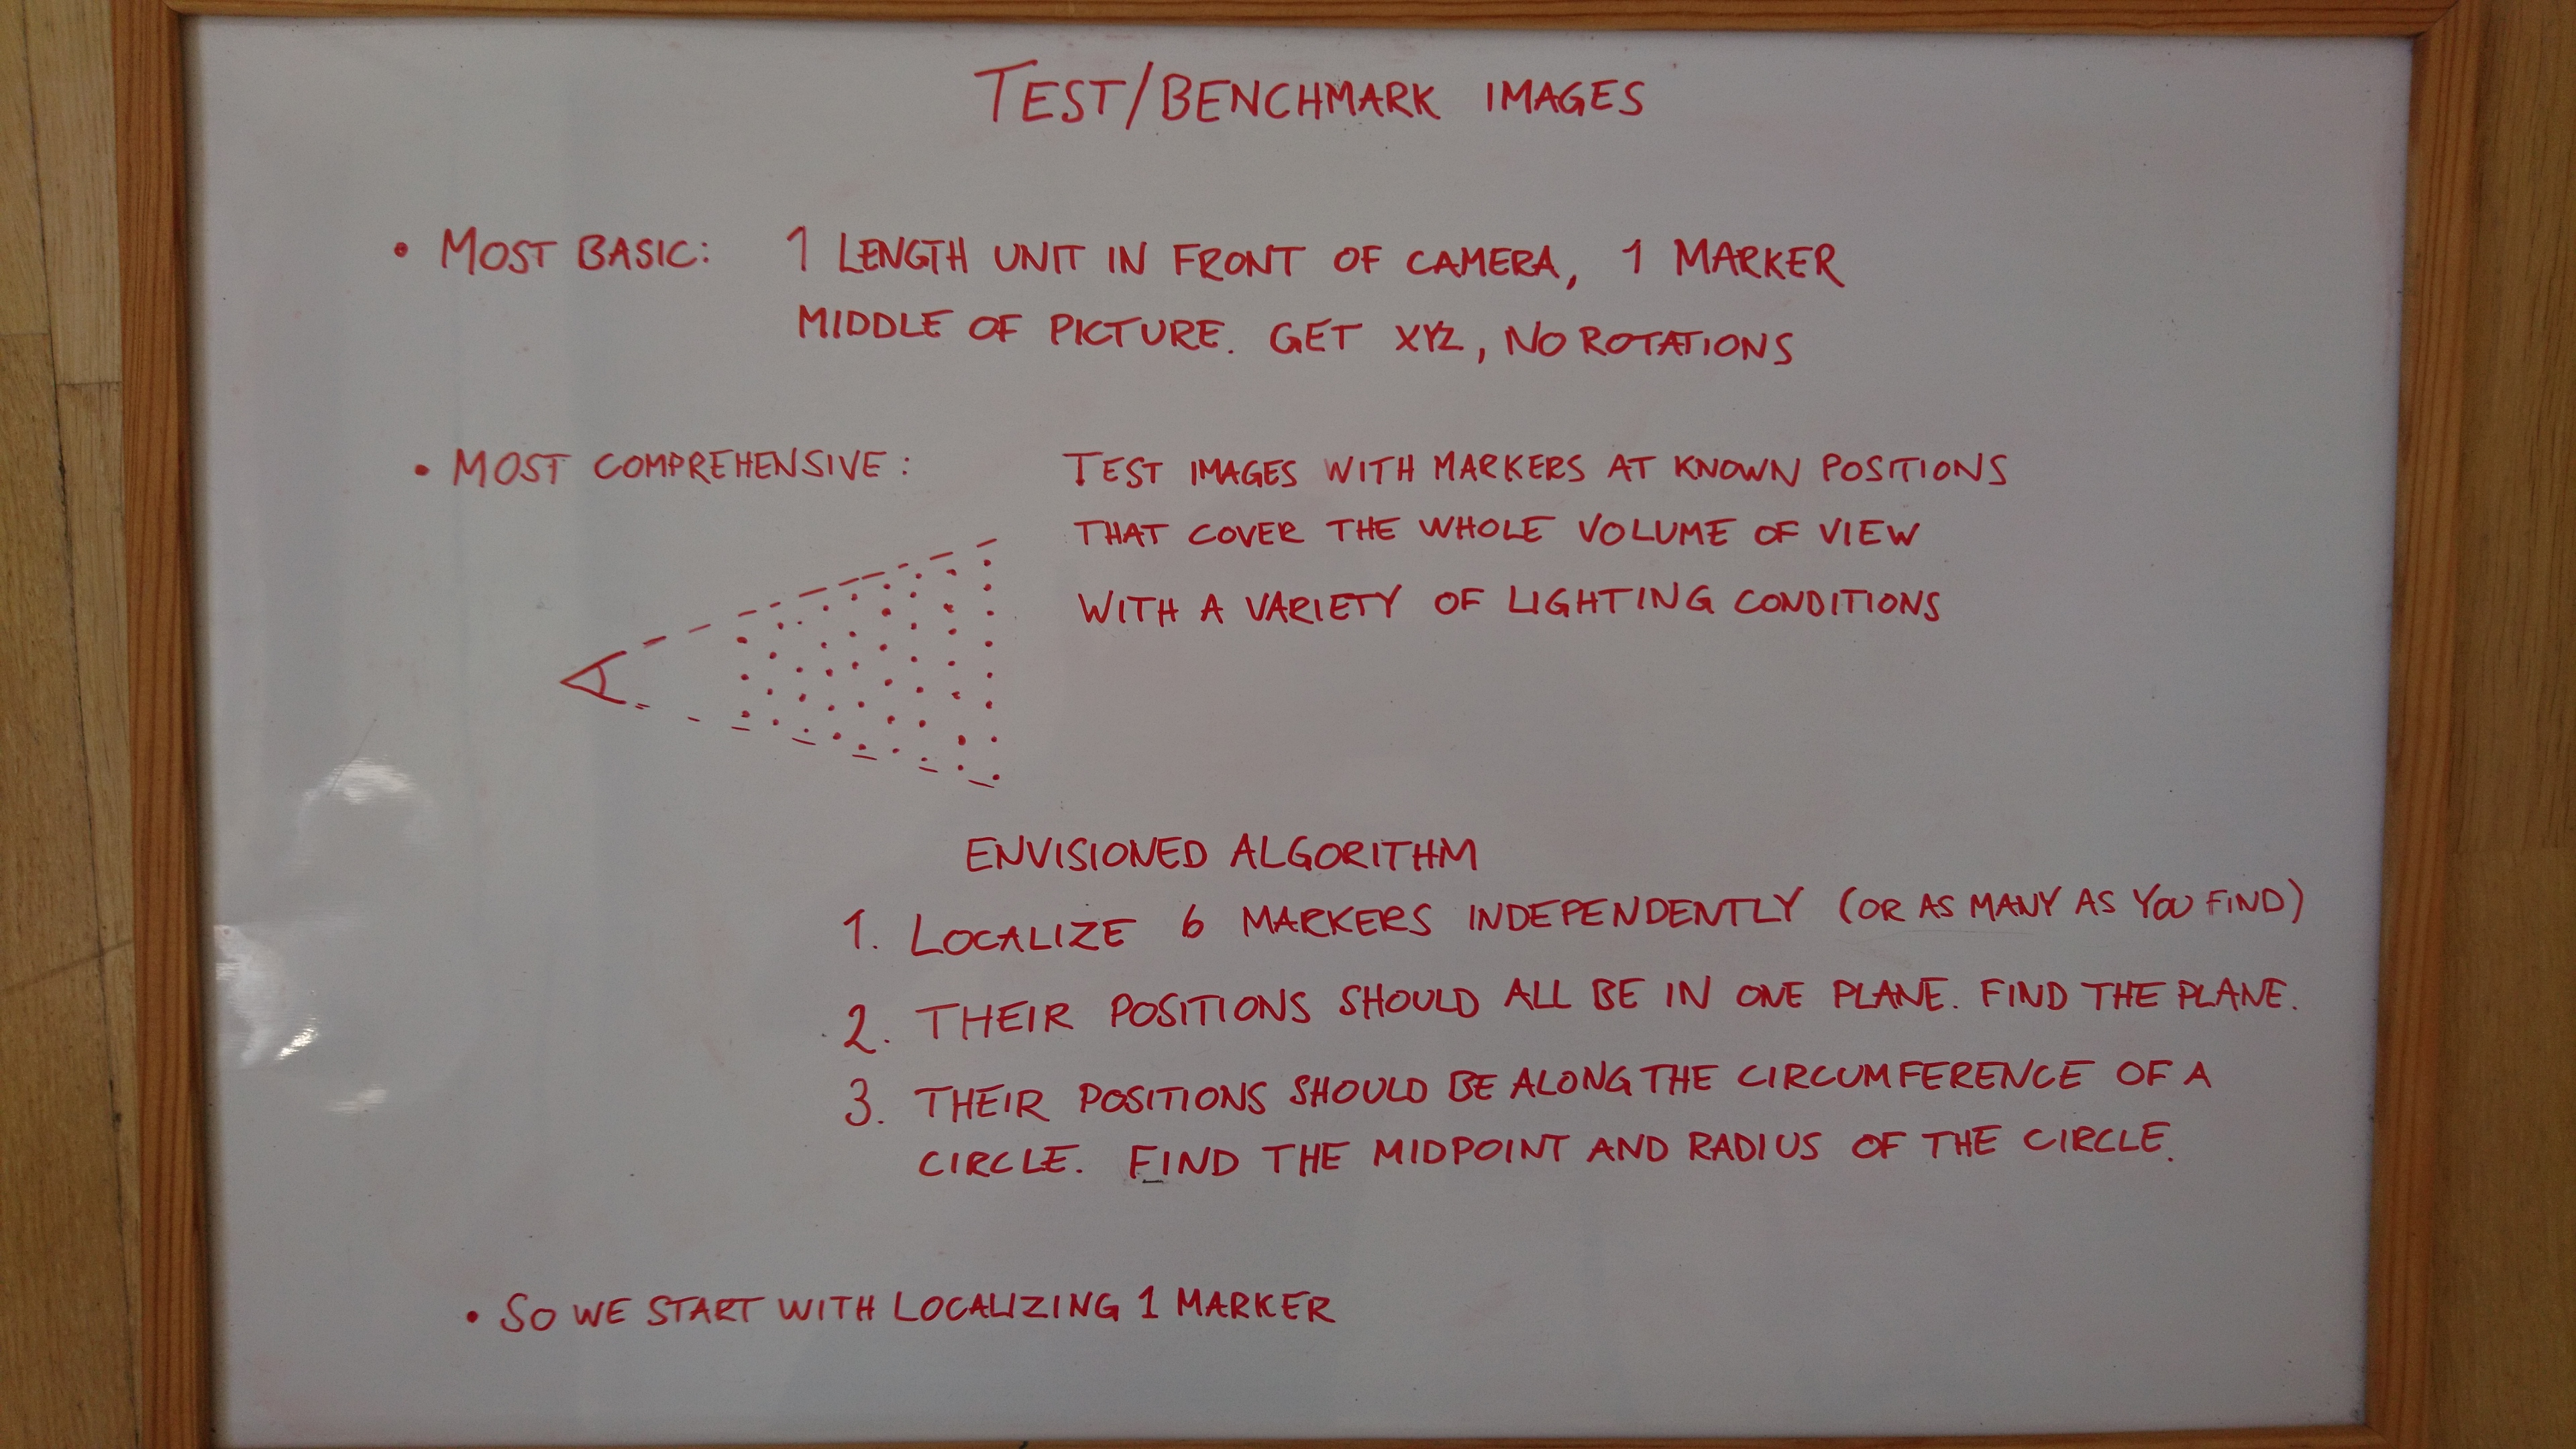 TEST/BENCHMARK IMAGES
• MOST BASIC: 1 LENGTH UNIT IN FRONT OF CAMERA, 1 MARKER
MIDDLE OF PICTURE. GET XYZ, NO ROTATIONS
• MOST COMPREHENSIVE: TEST IMAGES WITH MARKERS AT KNOWN POSITIONS
THAT COVER THE WHOLE VOLUME OF VIEW
WITH A VARIETY OF LIGHTING CONDITIONS
ENVISIONED ALGORITHM
1. LOCALIZE 6 MARKERS INDEPENDENTLY (OR AS MANY AS YOU FIND)
2. THEIR POSITIONS SHOULD ALL BE IN ONE PLANE. FIND THE PLANE.
3. THEIR POSITIONS SHOULD BE ALONG THE CIRCUMFERENCE OF A
CIRCLE. FIND THE MIDPOINT AND RADIUS OF THE CIRCLE.
• SO WE START WITH LOCALIZING 1 MARKER